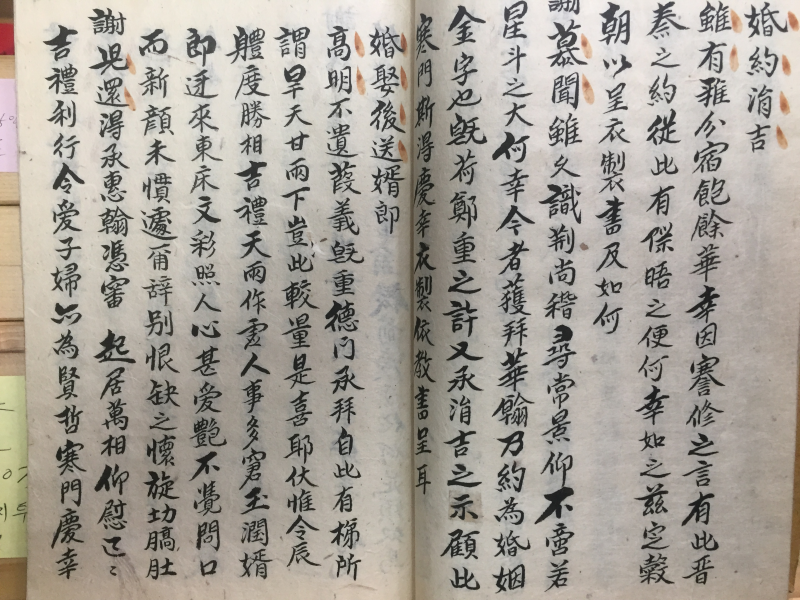 婚約涓吉
雖有雅分宿飽餘華幸因蹇修之言有此晋
秦之約從此有際晤之便何幸如之玆定穀
朝以呈衣製書及如何
謝 慕聞雖久識荆尚稽尋常景仰不啻若
星斗之大何幸今者獲拜華翰乃約為婚姻
金字也旣荷鄭重之許又承涓吉之示顧此
寒門斯得慶幸衣製依教書呈耳
婚娶後送婿郎
高明不遺葭義旣重德门承拜自此有梯所
謂旱天甘雨下豈此較量是喜耶伏惟令辰
軆度勝相吉禮天雨作雲人事多窘玉潤婿
即迓來東床文彩照人心甚爱艷不覺問口
而新顔未慣遽甭辞别恨缺之懷旋切膈肚
謝 是還得承惠翰憑審 起居萬相仰慰已〻
吉禮利行令爱子婦六為賢哲寒門慶幸